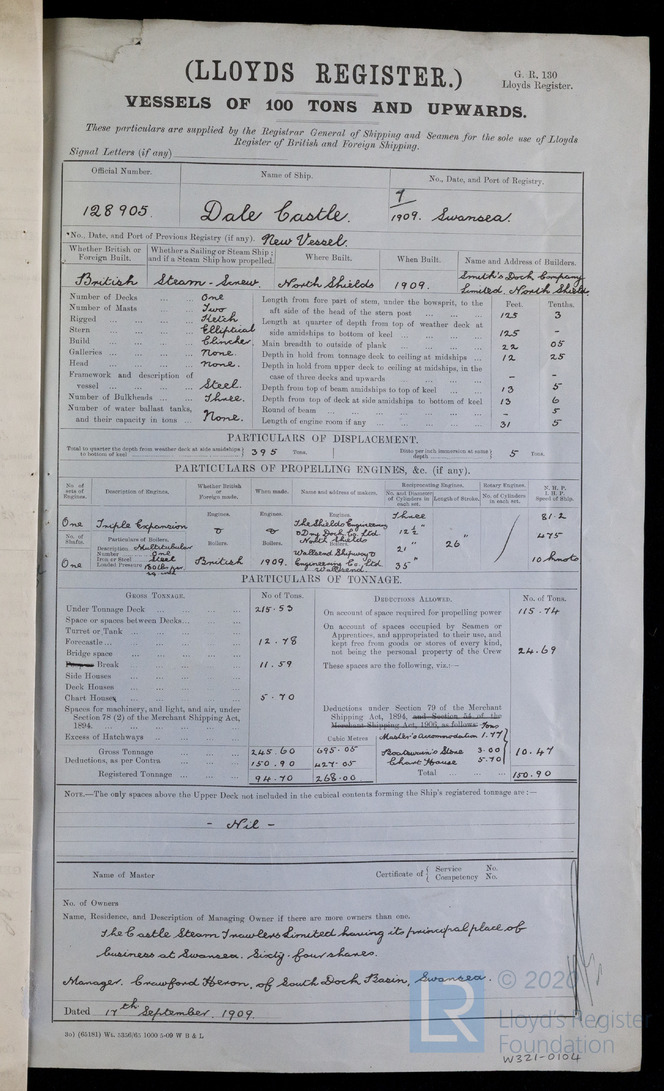 (LLOYDS REGISTER.)
G. R. 130
Lloyds Register.
VESSELS OF 100 TONS AND UPWARDS.
These particulars are supplied by the Registrar General of Shipping and Seamen for the sole use of Lloyds
Register of British and Foreign Shipping.
Signal Letters (if any)
Official Number. Name of Ship. No., Date, and Port of Registry.
128905. Dale Castle. 7/1909. Swansea.
No., Date, and Port of Previous Registry (if any). New Vessel.
Whether British or Foreign Built. Whether a Sailing or Steam Ship; and if a Steam Ship how propelled. Where Built. When Built. Name and Address of Builders.
British Steam - Screw. North Shields 1909. Smith's Dock Company Limited. North Shields.
Number of Decks ... ... One
Number of Masts ... ... Two
Rigged ... ... Ketch
Stern ... ... Elliptical
Build ... ... Clincher.
Galleries ... ... None.
Head ... ... None.
Framework and description of
vessel ... ... Steel.
Number of Bulkheads ... Three.
Number of water ballast tanks,
and their capacity in tons ... None.
Feet. Tenths.
Length from fore part of stem, under the bowsprit, to the
aft side of the head of the stern post ... 125 3
Length at quarter of depth from top of weather deck at
side amidships to bottom of keel ... 125 -
Main breadth to outside of plank ... 22 05
Depth in hold from tonnage deck to ceiling at midships ... 12 25
Depth in hold from upper deck to ceiling at midships, in the
case of three decks and upwards ... - -
Depth from top of beam amidships to top of keel ... 13 5
Depth from top of deck at side amidships to bottom of keel 13 6
Round of beam ... - 5
Length of engine room if any ... 31 5
PARTICULARS OF DISPLACEMENT.
Total to quarter the depth from weather deck at side amidships to bottom of keel 395 Tons. Ditto per inch immersion at same depth 5 Tons.
PARTICULARS OF PROPELLING ENGINES, &c. (if any).
No. of sets of Engines. Description of Engines. Whether British or Foreign made. When made. Name and address of makers. Reciprocating Engines. Rotary Engines. N. H. P. I. H. P. Speed of Ship.
No. and Diameter of Cylinders in each set. Length of Stroke. No. of Cylinders in each set.
Engines. Engines. Engines.
One Triple Expansion The Shields Engineering & Dry Dock Co. Ltd. North Shields Three 12½" 21" 35" 26" 81.2 475 10 knots
No. of Shafts. Particulars of Boilers. Boilers. Boilers. Boilers.
One Description Multitubular
Number One
Iron or Steel Steel
Loaded Pressure
British 1909. Wallsend Slipway & Engineering Co., Ltd. Wallsend
PARTICULARS OF TONNAGE.
GROSS TONNAGE. No. of Tons.
Under Tonnage Deck ... 215.53
Space or spaces between Decks ...
Turret or Tank ...
Forecastle ... 12.78
Bridge space ...
Poop or Break ... 11.59
Side Houses
Deck Houses
Chart House ... 5.70
Spaces for machinery, and light, and air, under
Section 78 (2) of the Merchant Shipping Act,
1894. ...
Excess of Hatchways ... Cubic Metres
Gross Tonnage ... 245.60 695.05
Deductions, as per Contra ... 150.90 427.05
Registered Tonnage ... 94.70 268.00
DEDUCTIONS ALLOWED. No. of Tons.
On account of space required for propelling power 115.74
On account of spaces occupied by Seamen or
Apprentices, and appropriated to their use, and
kept free from goods or stores of every kind,
not being the personal property of the Crew 24.69
These spaces are the following, viz.:—
Deductions under Section 79 of the Merchant
Shipping Act, 1894, and Section 54 of the
Merchant Shipping Act, 1906, as follows: Tons
Master's Accommodation 1.77
Boatswain's Store 3.00 10.47
Chart House 5.70
Total ... 150.90
NOTE.—The only spaces above the Upper Deck not included in the cubical contents forming the Ship's registered tonnage are:—
- Nil -
Name of Master Certificate of { Service No. Competency No.
No. of Owners
Name, Residence, and Description of Managing Owner if there are more owners than one.
The Castle Steam Trawlers Limited having its principal place of
business at Swansea. Sixty-four shares.
Manager. Crawford Heron, of South Dock Basin, Swansea.
Dated 17th September, 1909.
(65181) Wt. 5356/65 1000 5-09 W B & L
© 2020
LR
Lloyd's Register
Foundation
W321-0104